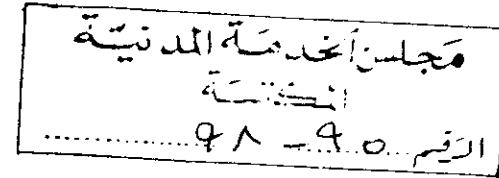 مجلس الخدمة المدنية
المكتبة
الرقم ٩٥ - ٩٨